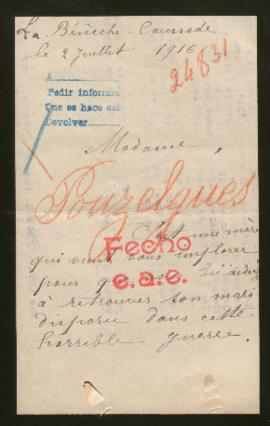 La Bénèche-Courrade
le 2 Juillet 1916
24831
A
Pedir informes
Que se hace así
Devolver
Madame,
Pouzelgues
C'est une mère
qui vient vous implorer
pour que vous lui aidiez
à retrouver son mari
disparu dans cette
horrible guerre.
Fecho
e.a.e.